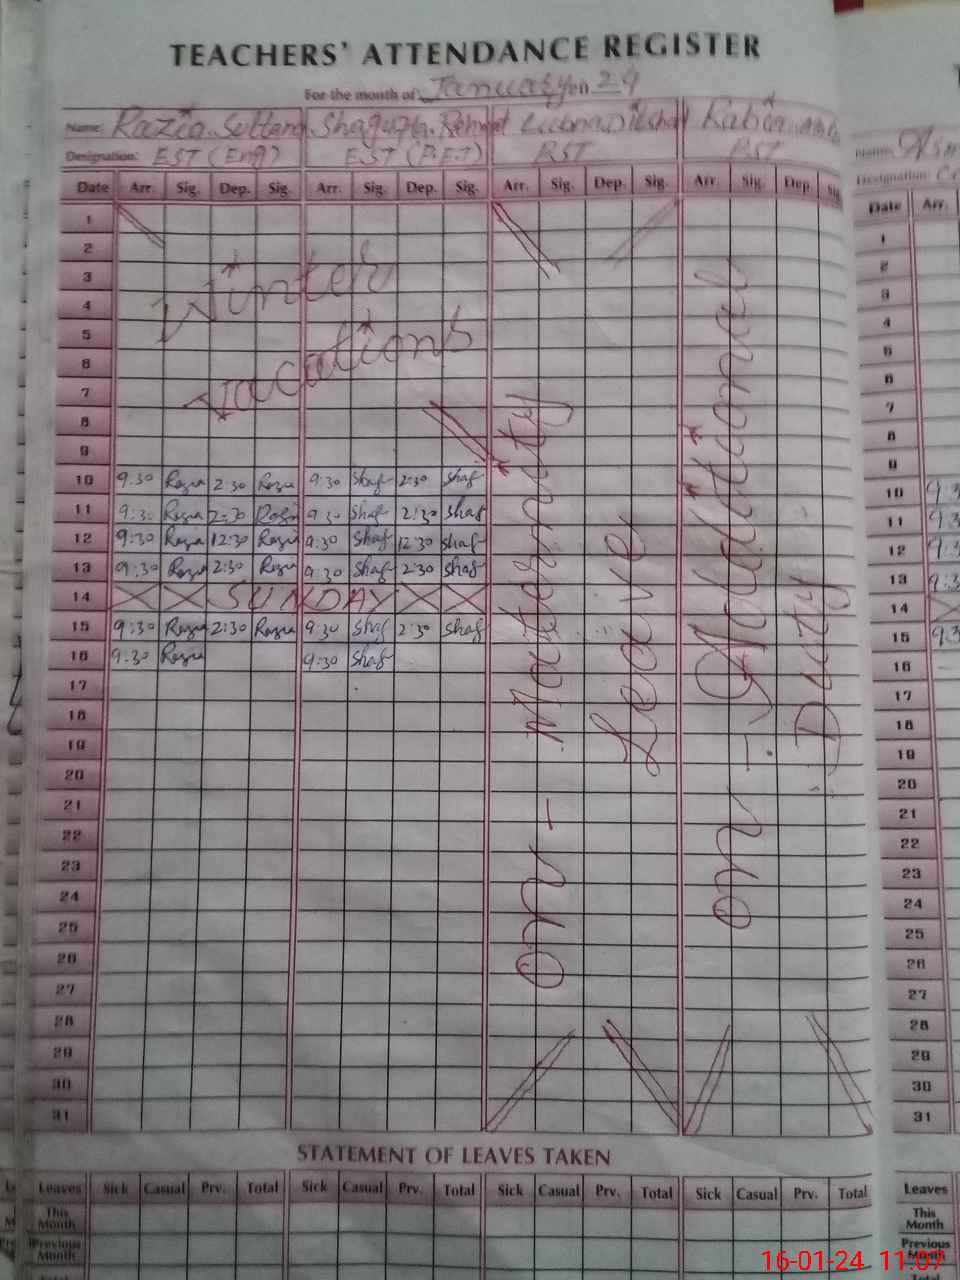 TEACHERS' ATTENDANCE REGISTER
For the month of January 24
Name: Razia Sultana Shagufta Rehmat Lubna Dilshad Rabia
Designation: EST (Eng) EST (P.E.T) PST PST
Date Arr. Sig. Dep. Sig. Arr. Sig. Dep. Sig. Arr. Sig. Dep. Sig. Arr. Sig. Dep. Date Arr.
1 1
2 2
3 3
4 4
5 5
6 6
7 7
8 8
9 9
Winter
vacations
10 9:30 Razia 2:30 Razia 9:30 Shaf 2:30 Shaf 10
11 9:30 Razia 2:30 Razia 9:30 Shaf 2:30 Shaf 11
12 9:30 Razia 12:30 Razia 9:30 Shaf 12:30 Shaf 12
13 9:30 Razia 2:30 Razia 9:30 Shaf 2:30 Shaf 13
14 SUNDAY 14
15 9:30 Razia 2:30 Razia 9:30 Shaf 2:30 Shaf 15
16 9:30 Razia 9:30 Shaf 16
17 17
18 18
19 19
20 20
21 21
22 22
23 23
24 24
25 25
26 26
27 27
28 28
29 29
30 30
31 31
on - Maternity
Leave
on - Additional
Duty
STATEMENT OF LEAVES TAKEN
Leaves Sick Casual Prv. Total Sick Casual Prv. Total Sick Casual Prv. Total Sick Casual Prv. Total Leaves
This Month This Month
Previous Month Previous Month
Total Total
16-01-24 11:07